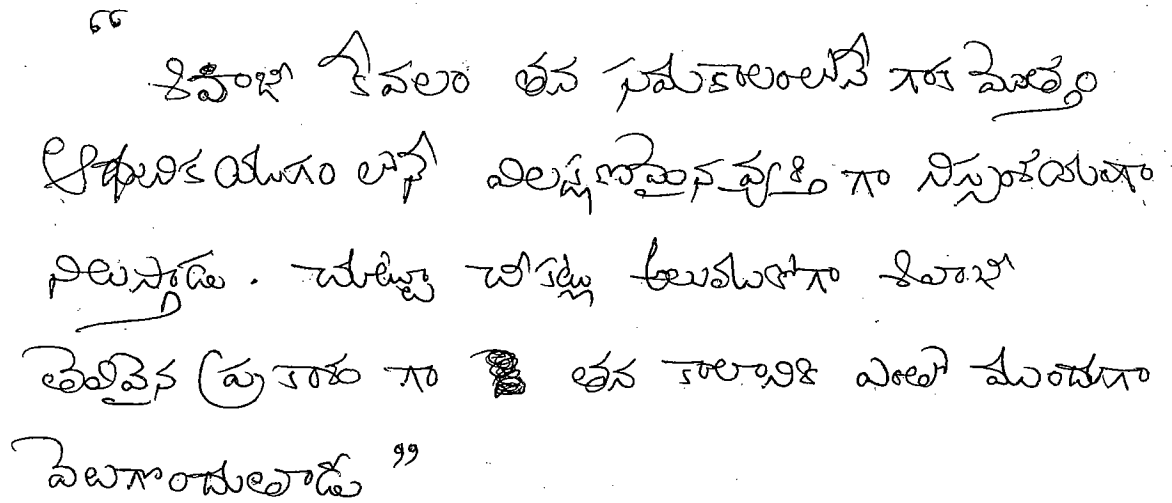 “
శివాజీ కేవలం తన సమకాలంలోనే గాక మొత్తం
ఆధునిక యుగం లోనే విలక్షణమైన వ్యక్తి గా నిస్సంశయంగా
నిలుస్తాడు. చుట్టూ చీకట్లు అలుముకోగా శివాజీ
తెలివైన ప్రకాశం గా తన కాలానికి ఎంతో ముందుగా
వెలుగొందుతాడు ”